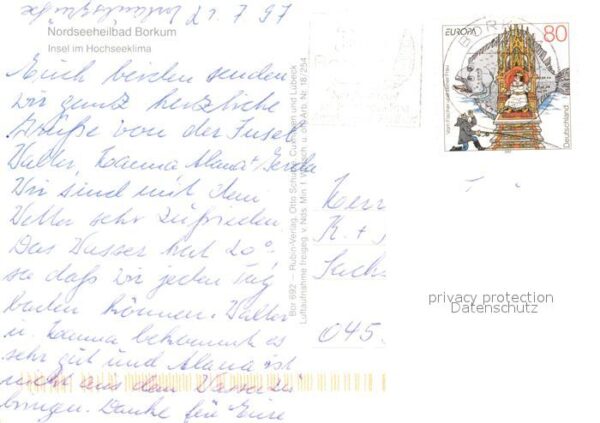 21.7.97
Nordseeheilbad Borkum
Insel im Hochseeklima
Euch beiden senden
wir ganz herzliche
Grüße von der Insel
Walter, Hanna, Alana + Gerda
Wir sind mit dem
Wetter sehr zufrieden.
Das Wasser hat 20°,
so daß wir jeden Tag
baden können. Walter
u. Hanna bekommt es
sehr gut und Alana ist
nicht aus dem Wasser zu
bringen. Danke für Eure
Bor 692 – Rubin-Verlag, Otto Schu Cuxhaven und Lübeck
Luftaufnahme freigeg. v. Nds. Min f. Wirtsch. u. ort Arb. Nr. 18/254
EUROPA
80
Deutschland
Vom Fischer und seiner Frau
BOR
Herr
K. +
Sachs
045
privacy protection
Datenschutz